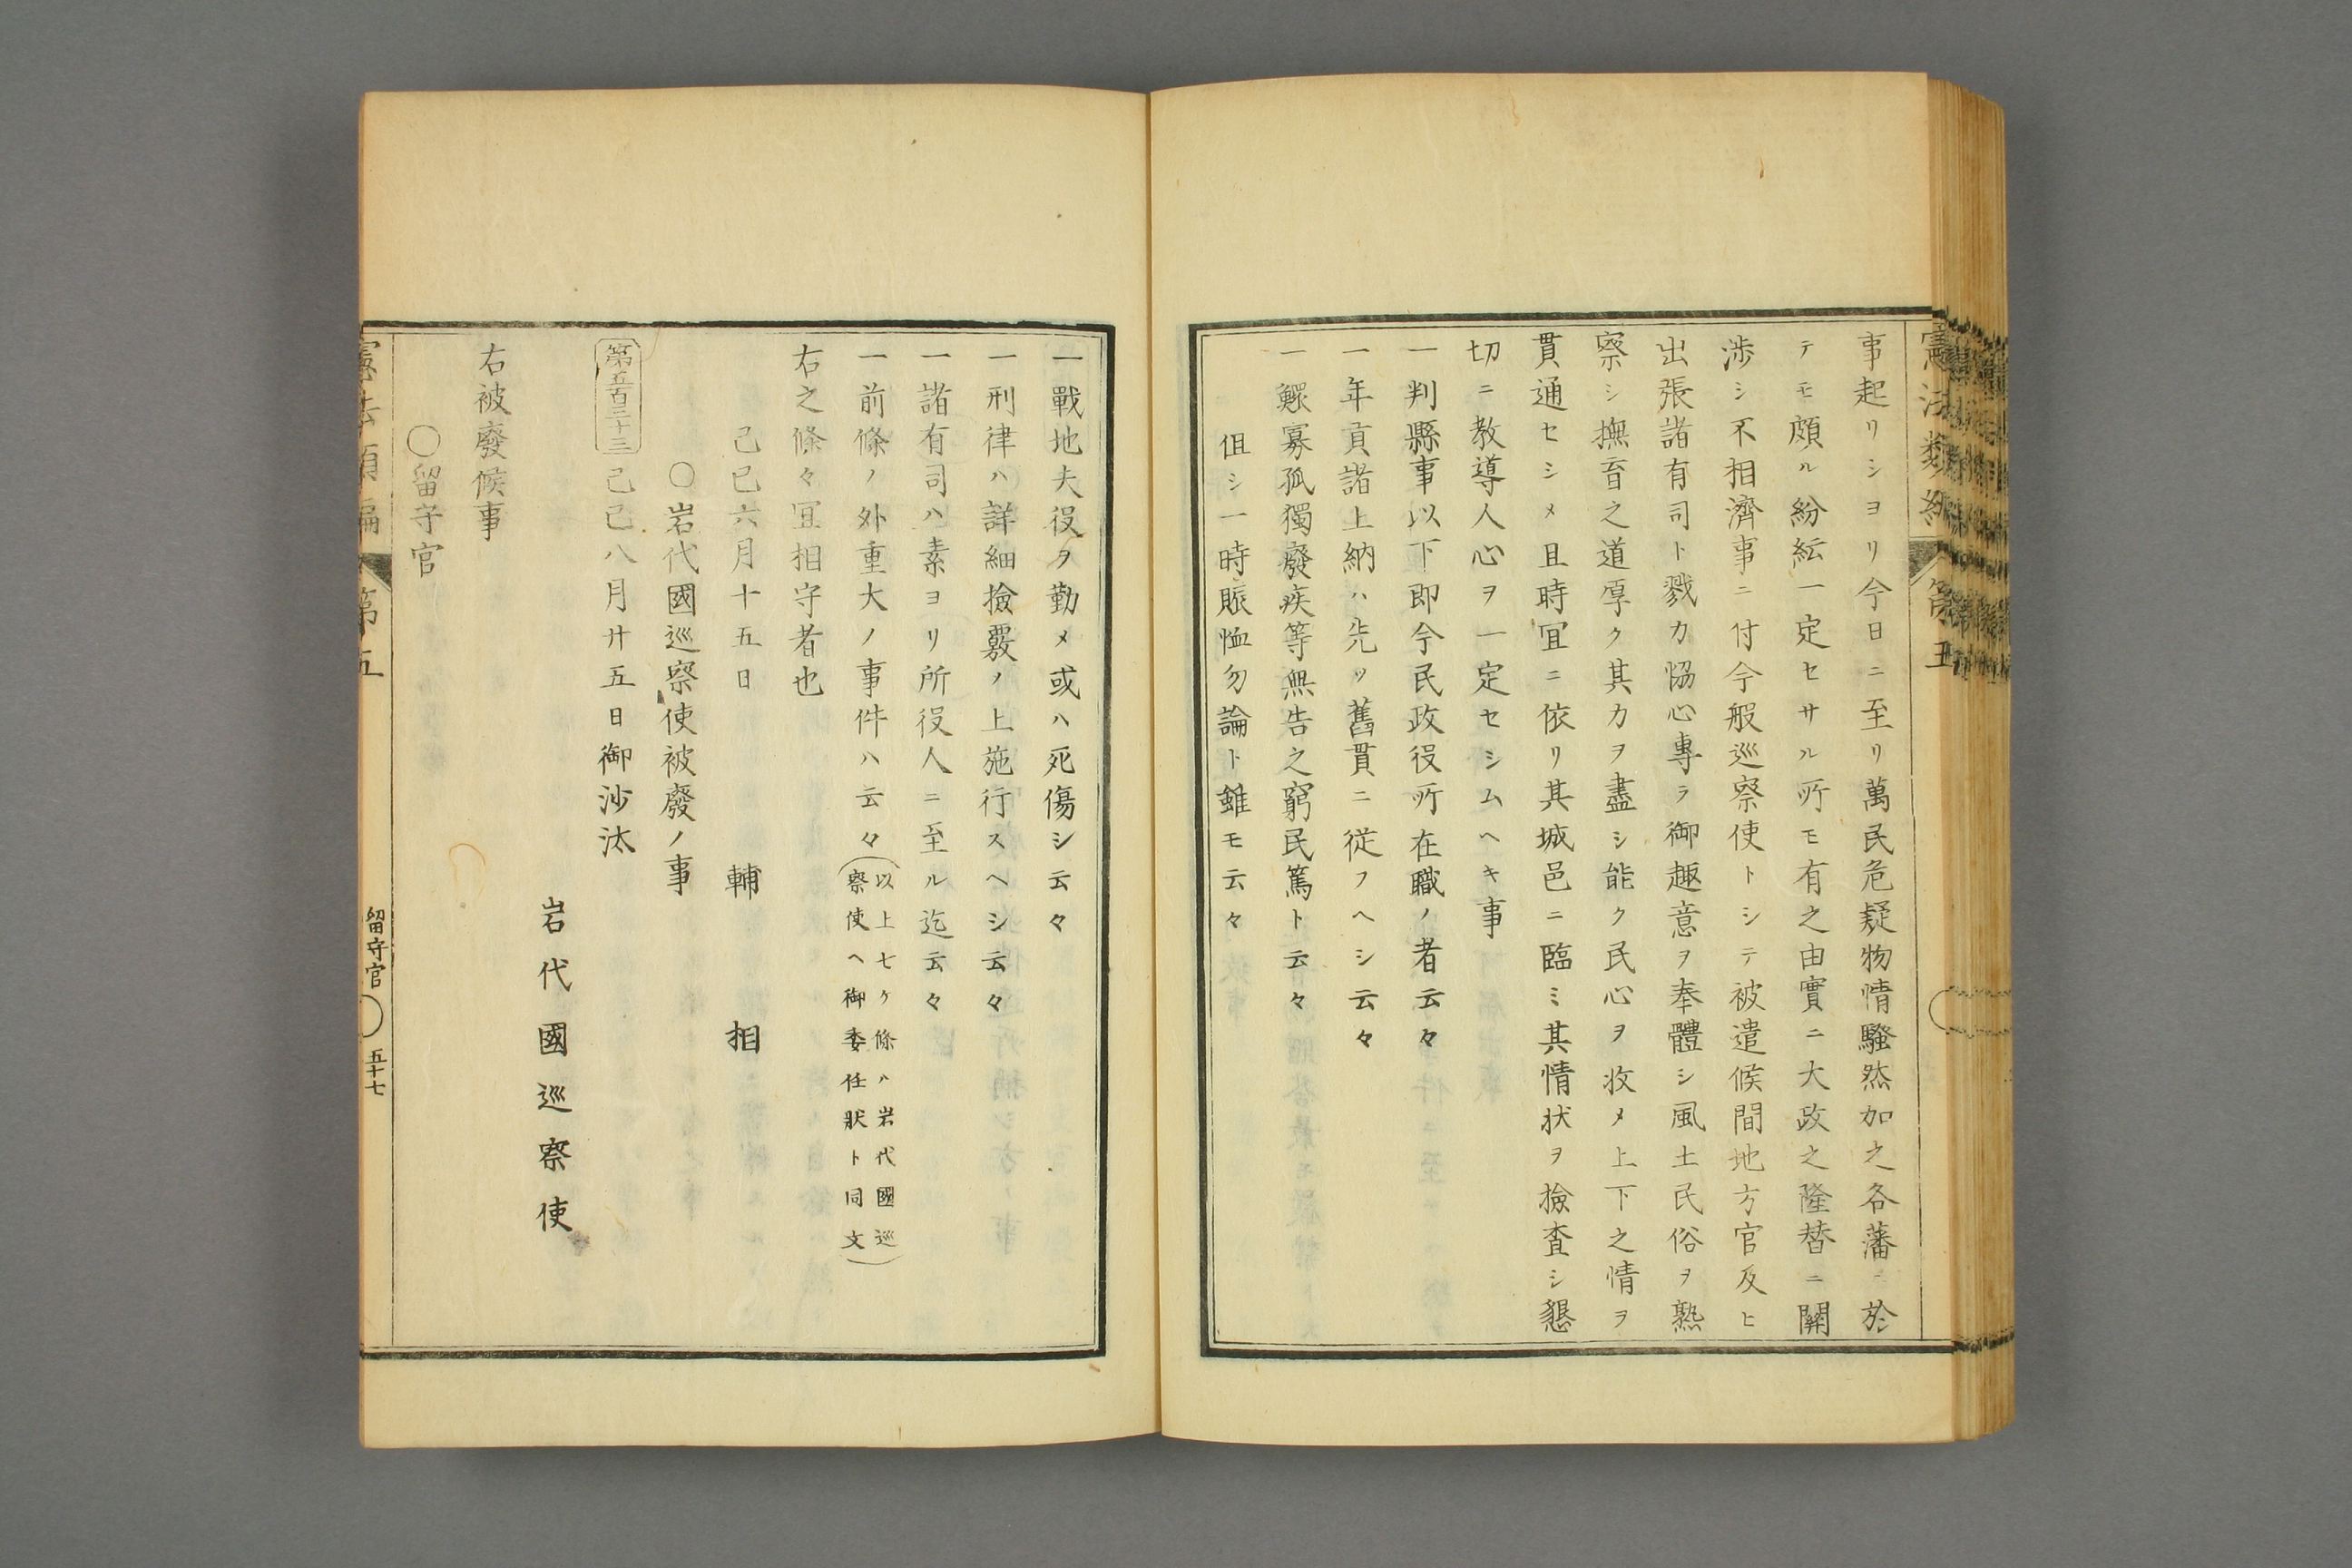 事起リシヨリ今日ニ至リ萬民危疑物情騷然加之各藩ニ於
テモ頗ル紛紜一定セサル所モ有之由實ニ大政之隆替ニ關
渉シ不相濟事ニ付今般巡察使トシテ被遣候間地方官及ヒ
出張諸有司ト戮力協心專ラ御趣意ヲ奉體シ風土民俗ヲ熟
察シ撫育之道厚ク其力ヲ盡シ能ク民心ヲ收メ上下之情ヲ
貫通セシメ且時冝ニ依リ其城邑ニ臨ミ其情状ヲ撿査シ懇
切ニ教導人心ヲ一定セシムヘキ事
一判縣事以下即今民政役所在職ノ者云々
一年貢諸上納ハ先ツ舊貫ニ従フヘシ云々
一鰥寡孤獨廢疾等無告之窮民篤ト云々
伹シ一時賑恤勿論ト雖モ云々
一戰地夫役ヲ勤メ或ハ死傷シ云々
一刑律ハ詳細撿覈ノ上施行スヘシ云々
一諸有司ハ素ヨリ所役人ニ至ル迄云々
一前條ノ外重大ノ事件ハ云々(以上七ケ條ハ岩代國巡
察使ヘ御委任狀ト同文)
右之條々冝相守者也
己巳六月十五日 輔相
○岩代國巡察使被廢ノ事
第五百三十三 己巳八月廿五日御沙汰
岩代國巡察使
右被廢候事
○留守官
憲法類編 第五 留守官 五十七